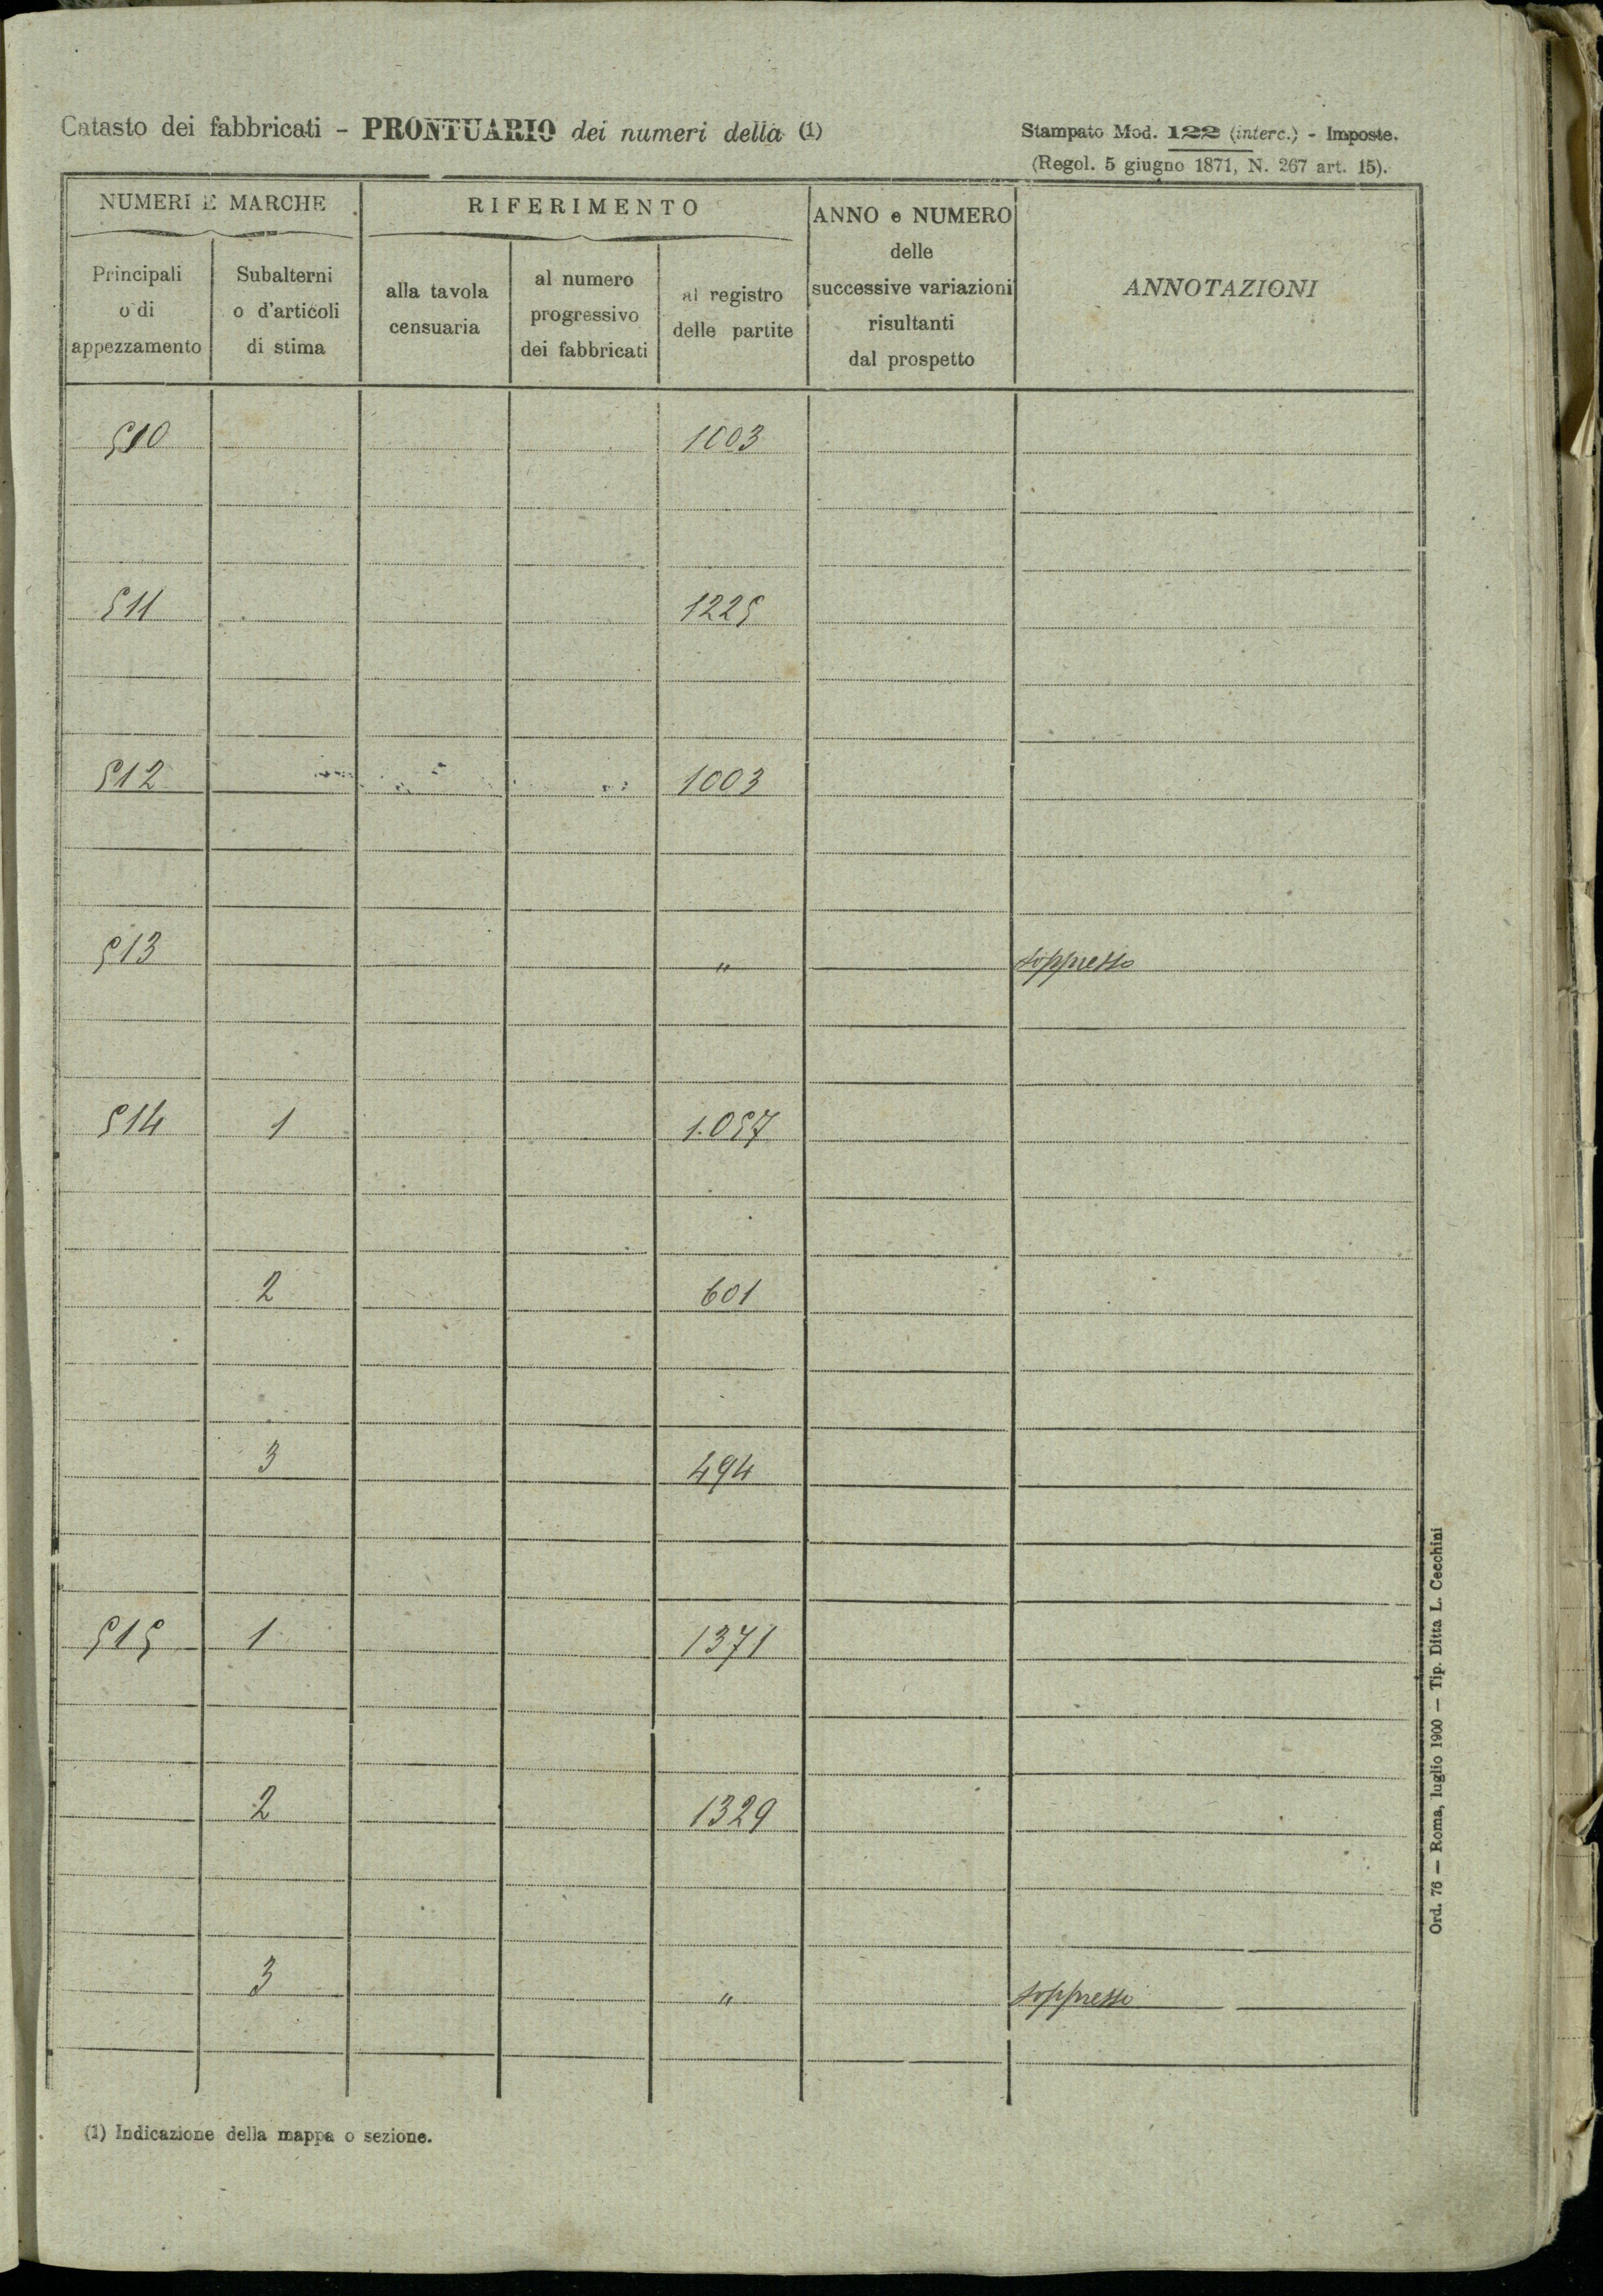 Catasto dei fabbricati - PRONTUARIO dei numeri della (1)
Stampato Mod. 122 (interc.) - Imposte.
(Regol. 5 giugno 1871, N. 267 art. 15).
NUMERI E MARCHE
RIFERIMENTO
ANNO e NUMERO
delle
successive variazioni
risultanti
dal prospetto
ANNOTAZIONI
Principali
o di
appezzamento
Subalterni
o d'articoli
di stima
alla tavola
censuaria
al numero
progressivo
dei fabbricati
al registro
delle partite
510 1003
511 1225
512 1003
513 " soppresso
514 1 1.057
2 601
3 494
515 1 1371
2 1329
3 " soppresso
(1) Indicazione della mappa o sezione.
Ord. 76 — Roma, luglio 1900 — Tip. Ditta L. Cecchini